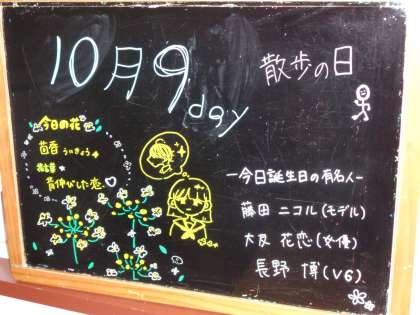 10月9day
散歩の日
今日の花
茴香 ういきょう
背伸びした恋
ー今日誕生日の有名人ー
藤田 ニコル(モデル)
大友 花恋(女優)
長野 博(V6)